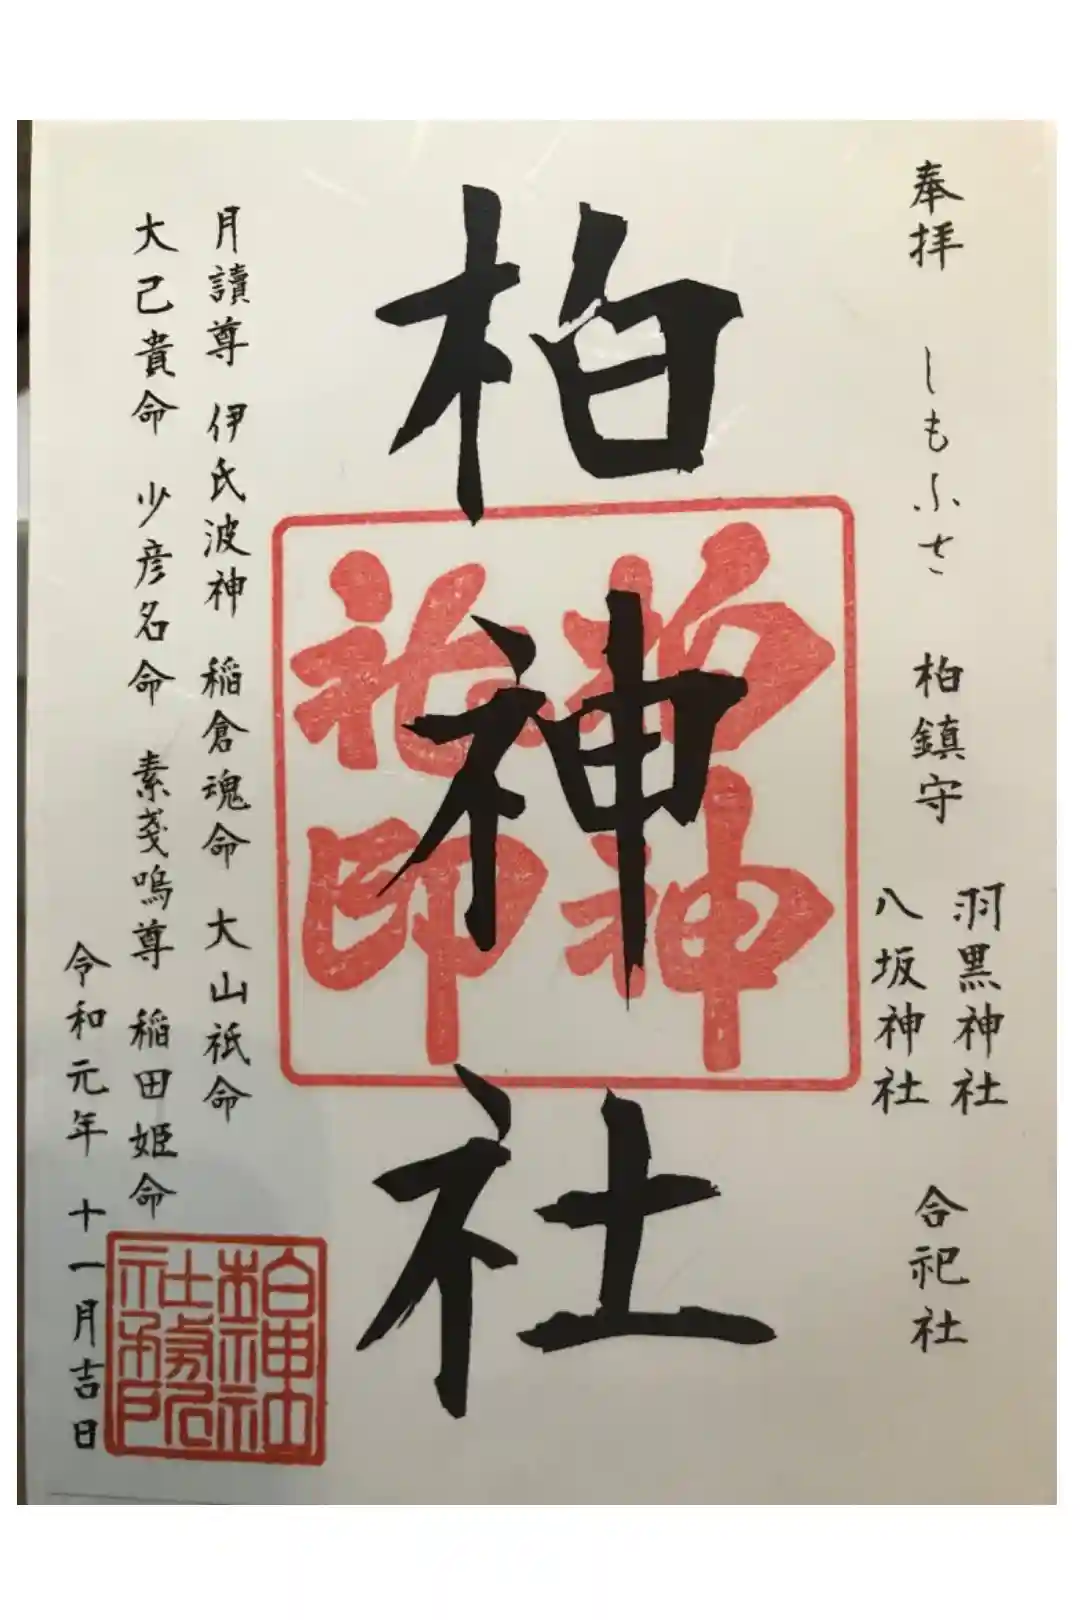 奉拝 しもふさ 柏鎮守
羽黒神社
八坂神社
合祀社
柏神社
柏神社印
月讀尊 伊氐波神 稲倉魂命 大山祇命
大己貴命 少彦名命 素戔嗚尊 稲田姫命
令和元年 十一月吉日
柏神社
社務所